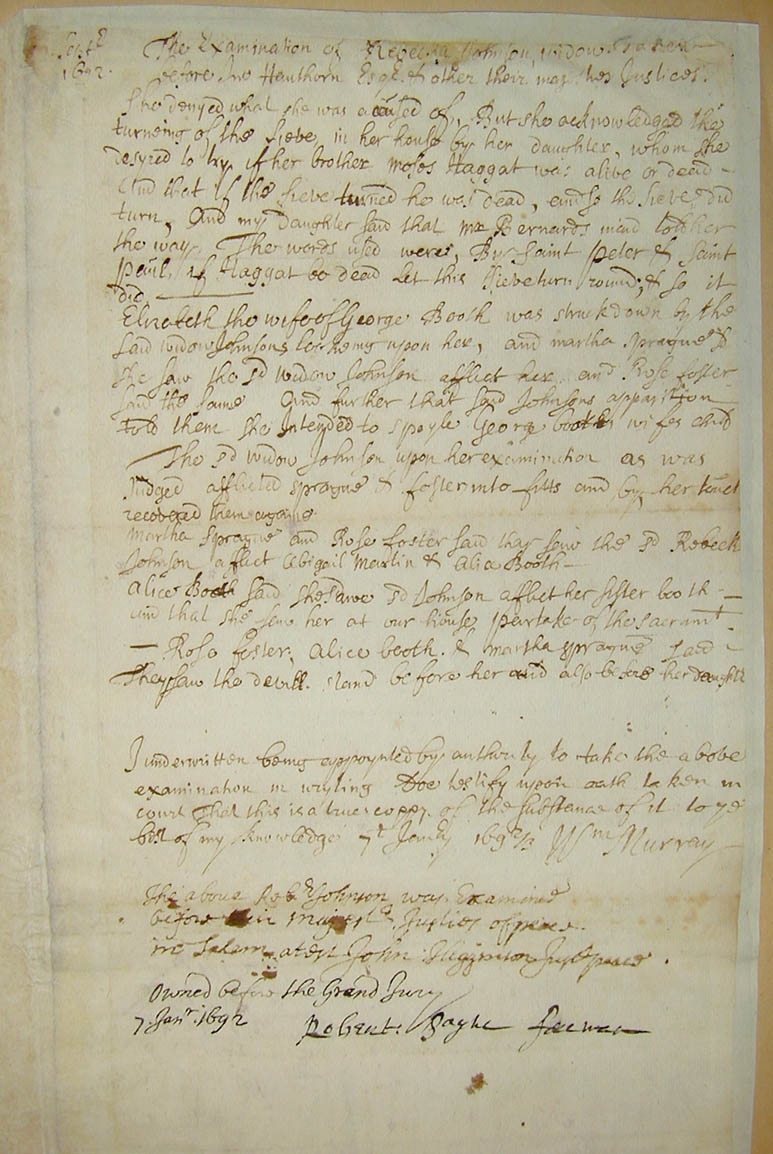 Sept^r The Examination of Rebecka Johnson, widow taken
1692. before Jno Hauthorn Esq^r. & other their maj^ties Justices.
She denyed what she was acused of, But she acknowledged the
turneing of the Sieve, in her house by her daughter, whom she
desyred to try if her brother moses Haggat was alive or dead -
And that if the sieve turned he was dead, and so the sieve did
turn, And my daughter said that m^r Bernards maid told her
the way. The words used were, By Saint Peter & Saint
Paul, if Haggat be dead let this sieve turn round; & so it
did.
Elizabeth the wife of George Booth was struck down by the
said widow Johnsons looking upon her, and martha Sprague s^d
she saw the s^d widow Johnson afflict her and Rose foster
said the same And further that said Johnsons apparition
told them she Intended to spoyle George booths wifes child
The s^d widow Johnson upon her examination as was
Judged afflicted sprague & foster into fitts and by her touch
recovered them againe
Martha Sprague and Rose foster said thay saw the s^d Rebeck
Johnson afflict Abigail Martin & Alice Booth -
Alice Booth said she sawe s^d Johnson afflict her sister booth -
and that she saw her at our house partake of the sacram^t.
- Rose foster, Alice booth. & martha sprague said -
They saw the devill. stand before her and also before her daught^r
I underwritten being appoynted by authority to take the above
examination in wryting Doe testify upon oath taken in
court That this is a true coppy of the substance of it to y^e
best of my knowledge 7^t Jan^ry 1692/3 W^m Murray
The above Reb^c Johnson was Examined
before their Majest^s Justices of peace.
in Salem atest John Higginson Just peace.
Owned before the Grand Jury
7. Jan^r. 1692 Robert: Payne foreman